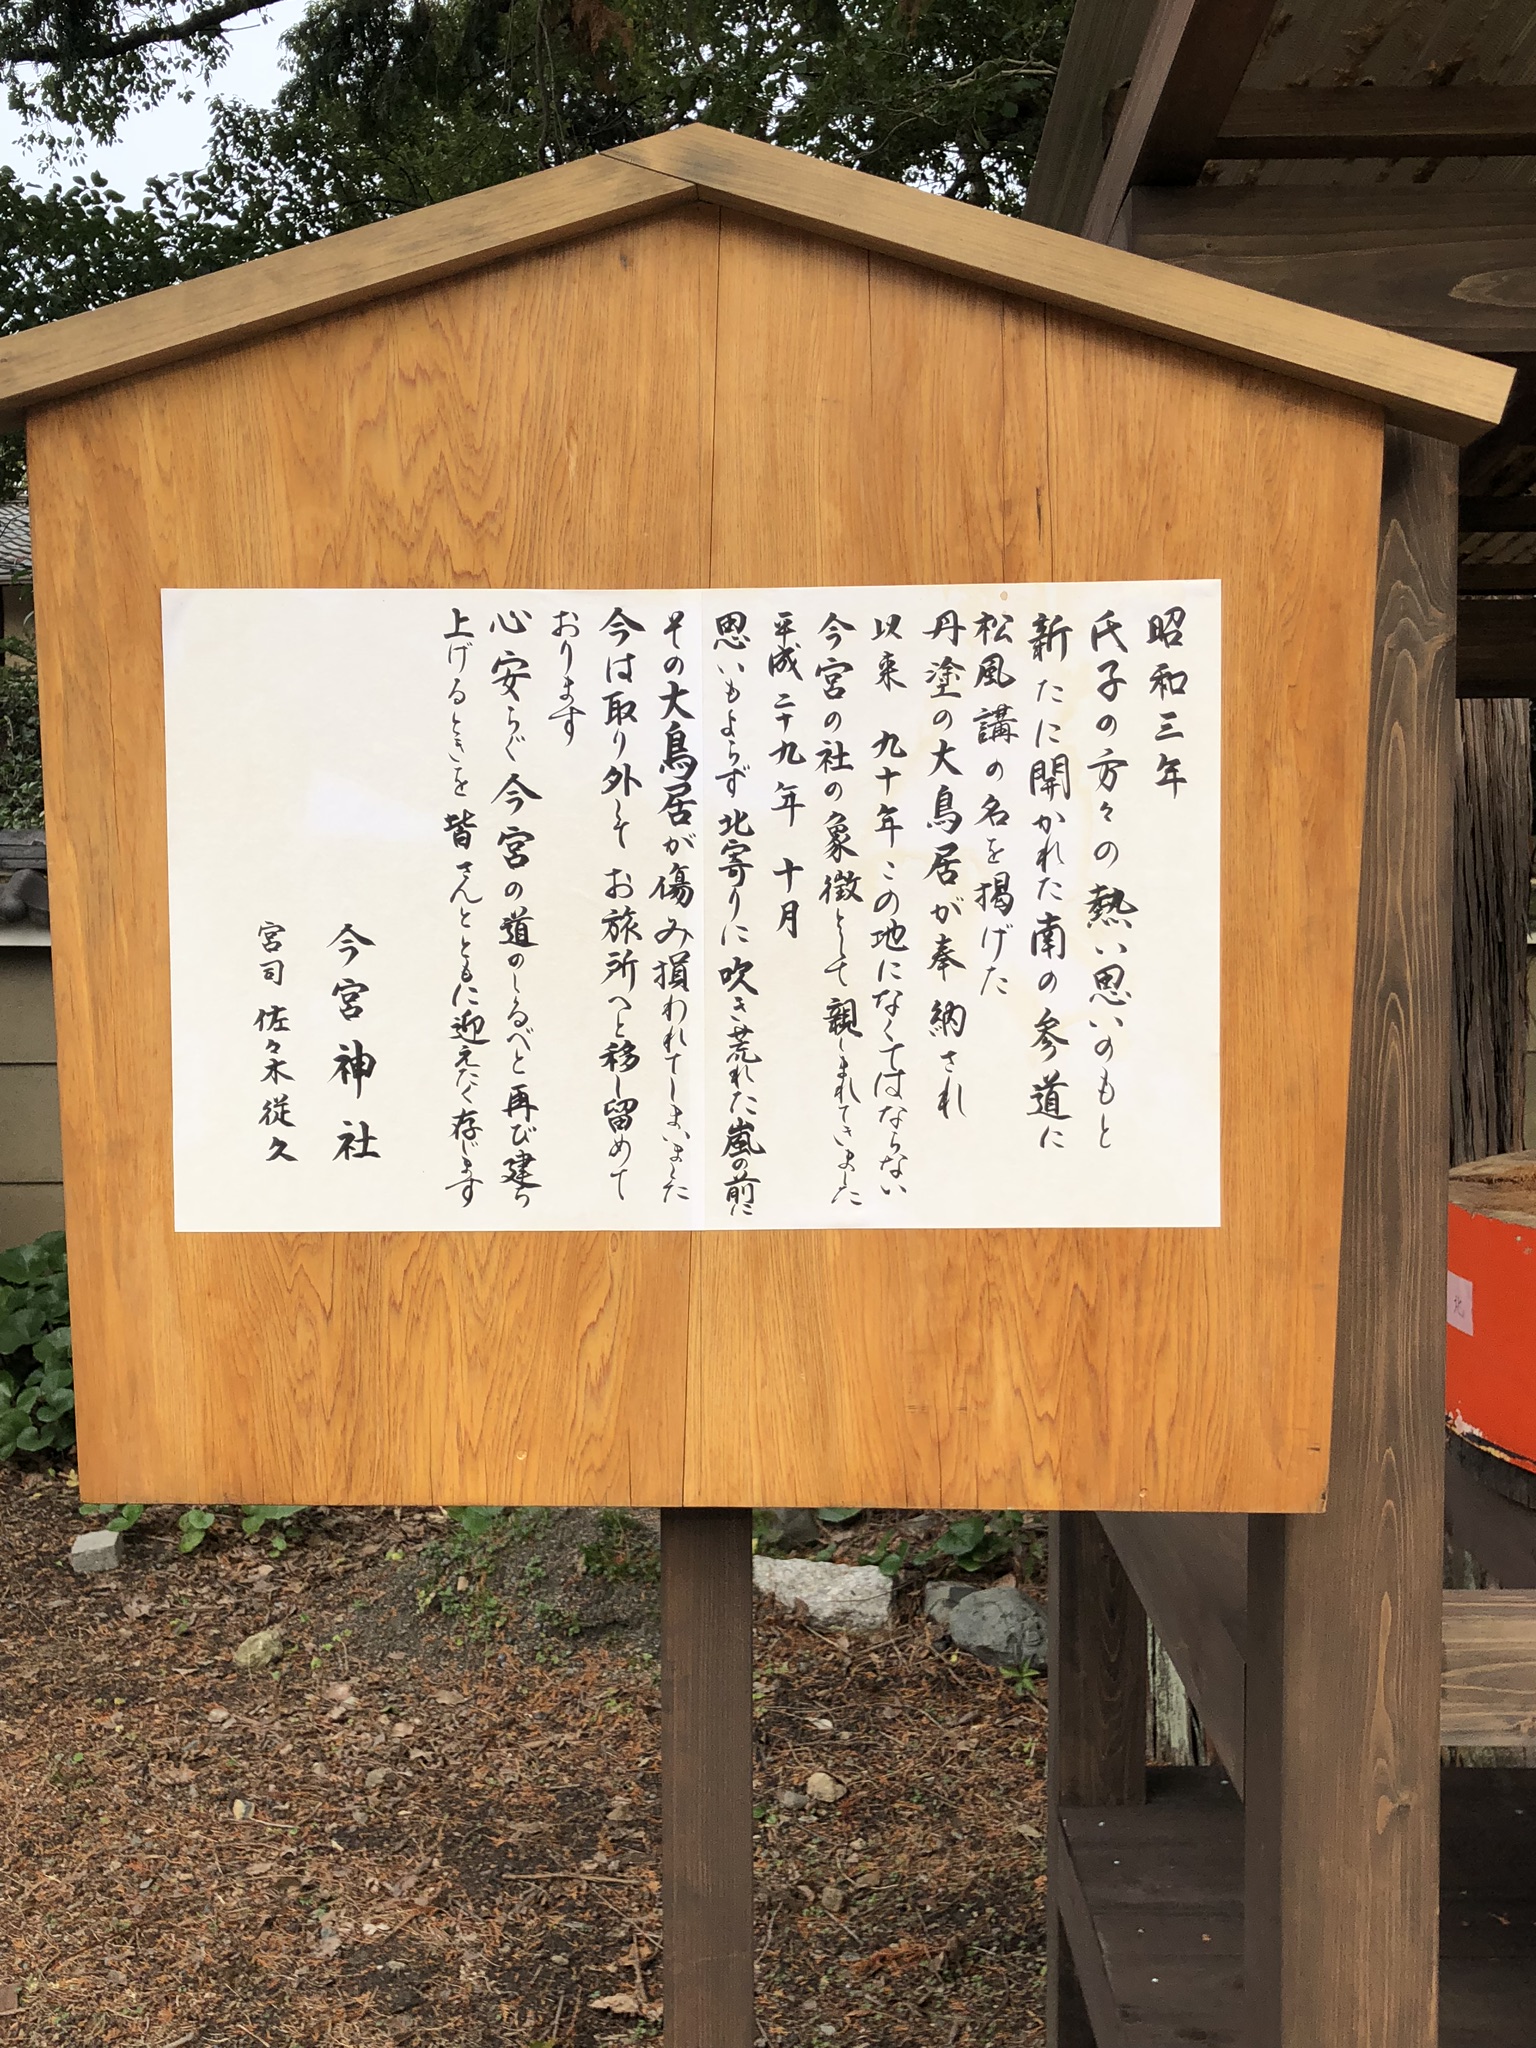 昭和三年
氏子の方々の熱い思いのもと
新たに開かれた南の参道に
松風講の名を掲げた
丹塗の大鳥居が奉納され
以来 九十年この地になくてはならない
今宮の社の象徴として親しまれてきました
平成二十九年 十月
思いもよらず北寄りに吹き荒れた嵐の前に
その大鳥居が傷み損われてしまいました
今は取り外して お旅所へと移し留めて
おります
心安らぐ今宮の道のしるべと再び建ち
上げるときを皆さんとともに迎えたく存じます
今宮神社
宮司 佐々木従久